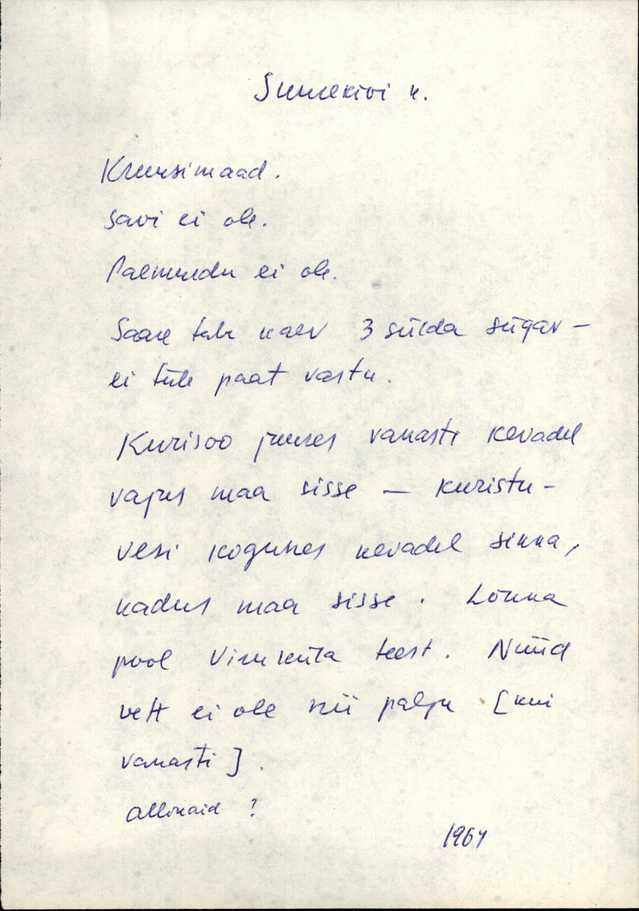 Sumekivi k.
Kruusimaad.
Savi ei ole.
Paemurdu ei ole.
Saare talu kaev 3 sülda sügav –
ei tule paat vastu.
Kurisoo juures vanasti kevadel
vajus maa sisse – kuristu –
vesi kogunes kevadel sinna,
kadus maa sisse. Lõuna
pool Viruküla teest. Nüüd
vett ei ole nii palju [kui
vanasti].
allikaid ?
1964